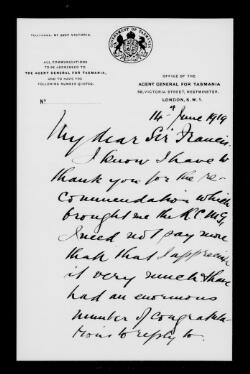 ALL COMMUNICATIONS
TO BE ADDRESSED TO
THE AGENT GENERAL FOR TASMANIA,
AND TO HAVE THE
FOLLOWING NUMBER QUOTED:
No
OFFICE OF THE
AGENT GENERAL FOR TASMANIA
VICTORIA STREET, WESTMINSTER,
LONDON, S.W.1.
14th June 1919
My dear Sir Francis.
I know I have to
thank you for the re-
commendation which
brought me the K.C.M.G.
I need not say more
than that I appreciate
it very much & have
had an enormous
number of congratula-
tions to reply to.